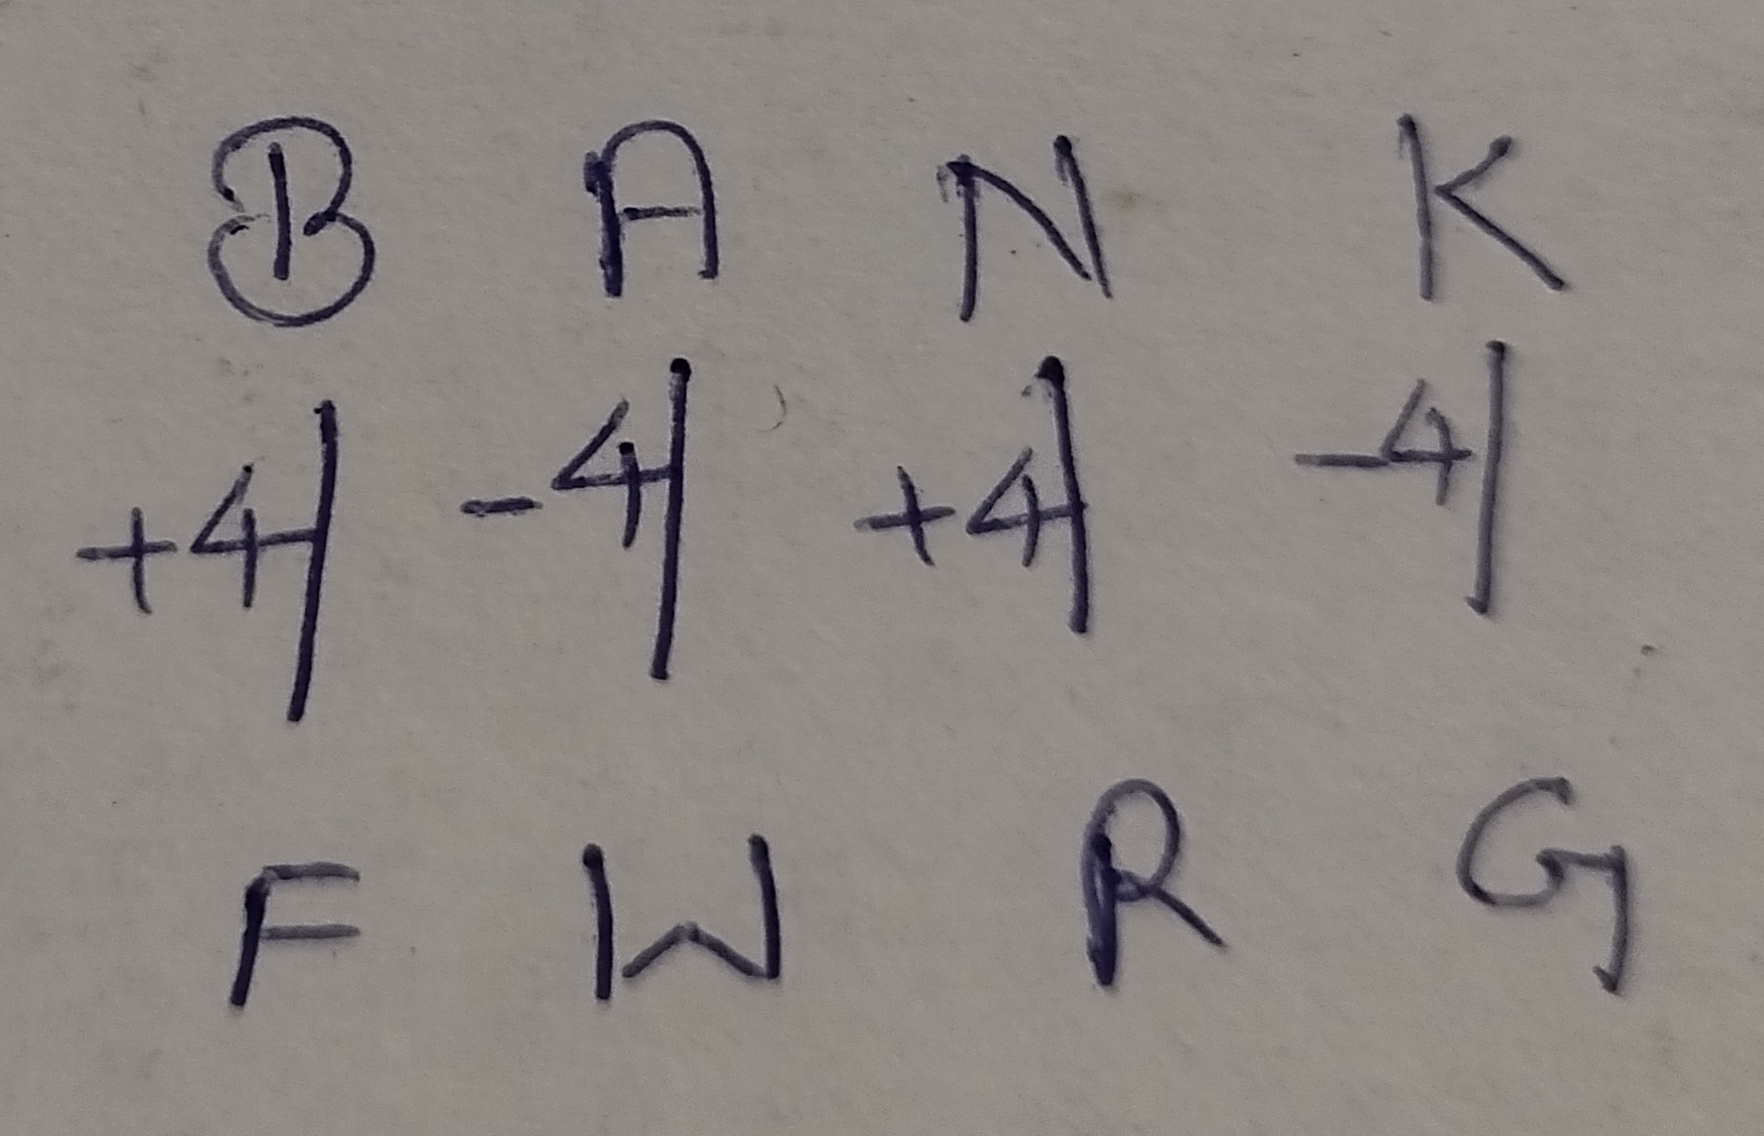 B A N K
+4 -4 +4 -4
F W R G